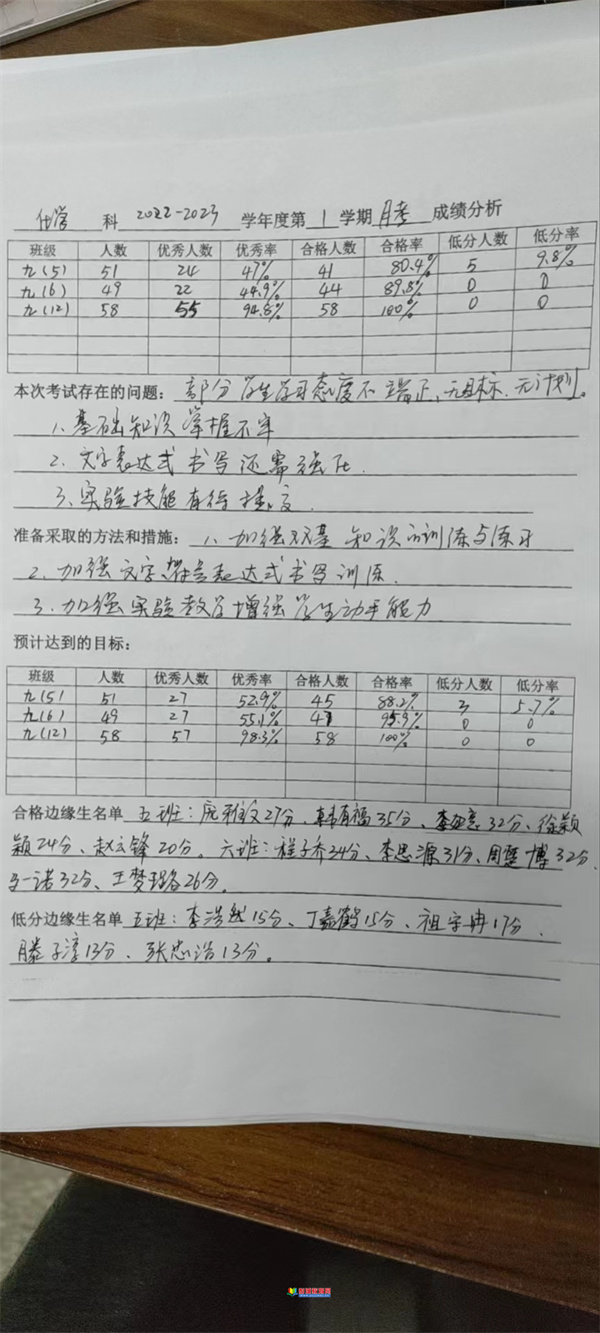 化学 科 2022-2023 学年度第 1 学期 月考 成绩分析
班级 人数 优秀人数 优秀率 合格人数 合格率 低分人数 低分率
九(5) 51 24 47% 41 80.4% 5 9.8%
九(6) 49 22 44.9% 44 89.8% 0 0
九(12) 58 55 94.8% 58 100% 0 0
本次考试存在的问题：部分学生学习态度不端正，无目标、无计划。
1、基础知识掌握不牢
2、文字表达式书写还需强化.
3、实验技能有待提高.
准备采取的方法和措施：1、加强双基知识的训练与练习
2、加强文字、符号表达式书写训练.
3、加强实验教学增强学生动手能力
预计达到的目标：
班级 人数 优秀人数 优秀率 合格人数 合格率 低分人数 低分率
九(5) 51 27 52.9% 45 88.2% 3 5.7%
九(6) 49 27 55.1% 47 95.9% 0 0
九(12) 58 57 98.3% 58 100% 0 0
合格边缘生名单 五班：庞雅文27分、韩有福35分、李 32分、徐颖
颖24分、赵云锋20分。六班：程子乔34分、李思源31分、周楚博32分、
一诺32分、王梦璐26分.
低分边缘生名单 五班：李浩然15分、丁嘉鹤15分、祖宇冉17分、
滕子淳13分、张忠浩13分。